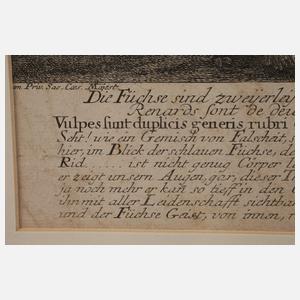 m Priv. Sac. Cæs. Majest.
Die Füchse sind zweijerley
Renards sont de deu
Vulpes sunt duplicis generis rubri
Seht! wie ein Gemisch von Falscheit, s
hier, im Blick der schlauen Füchse, de
Rid.... ist nicht genug Cörper l
er zeigt unsern Augen, gar, dieser T
ja noch mehr er kan so tieff in den
ihn mit aller Leidenschafft sichtba
und der Füchse Geist, von innen, r